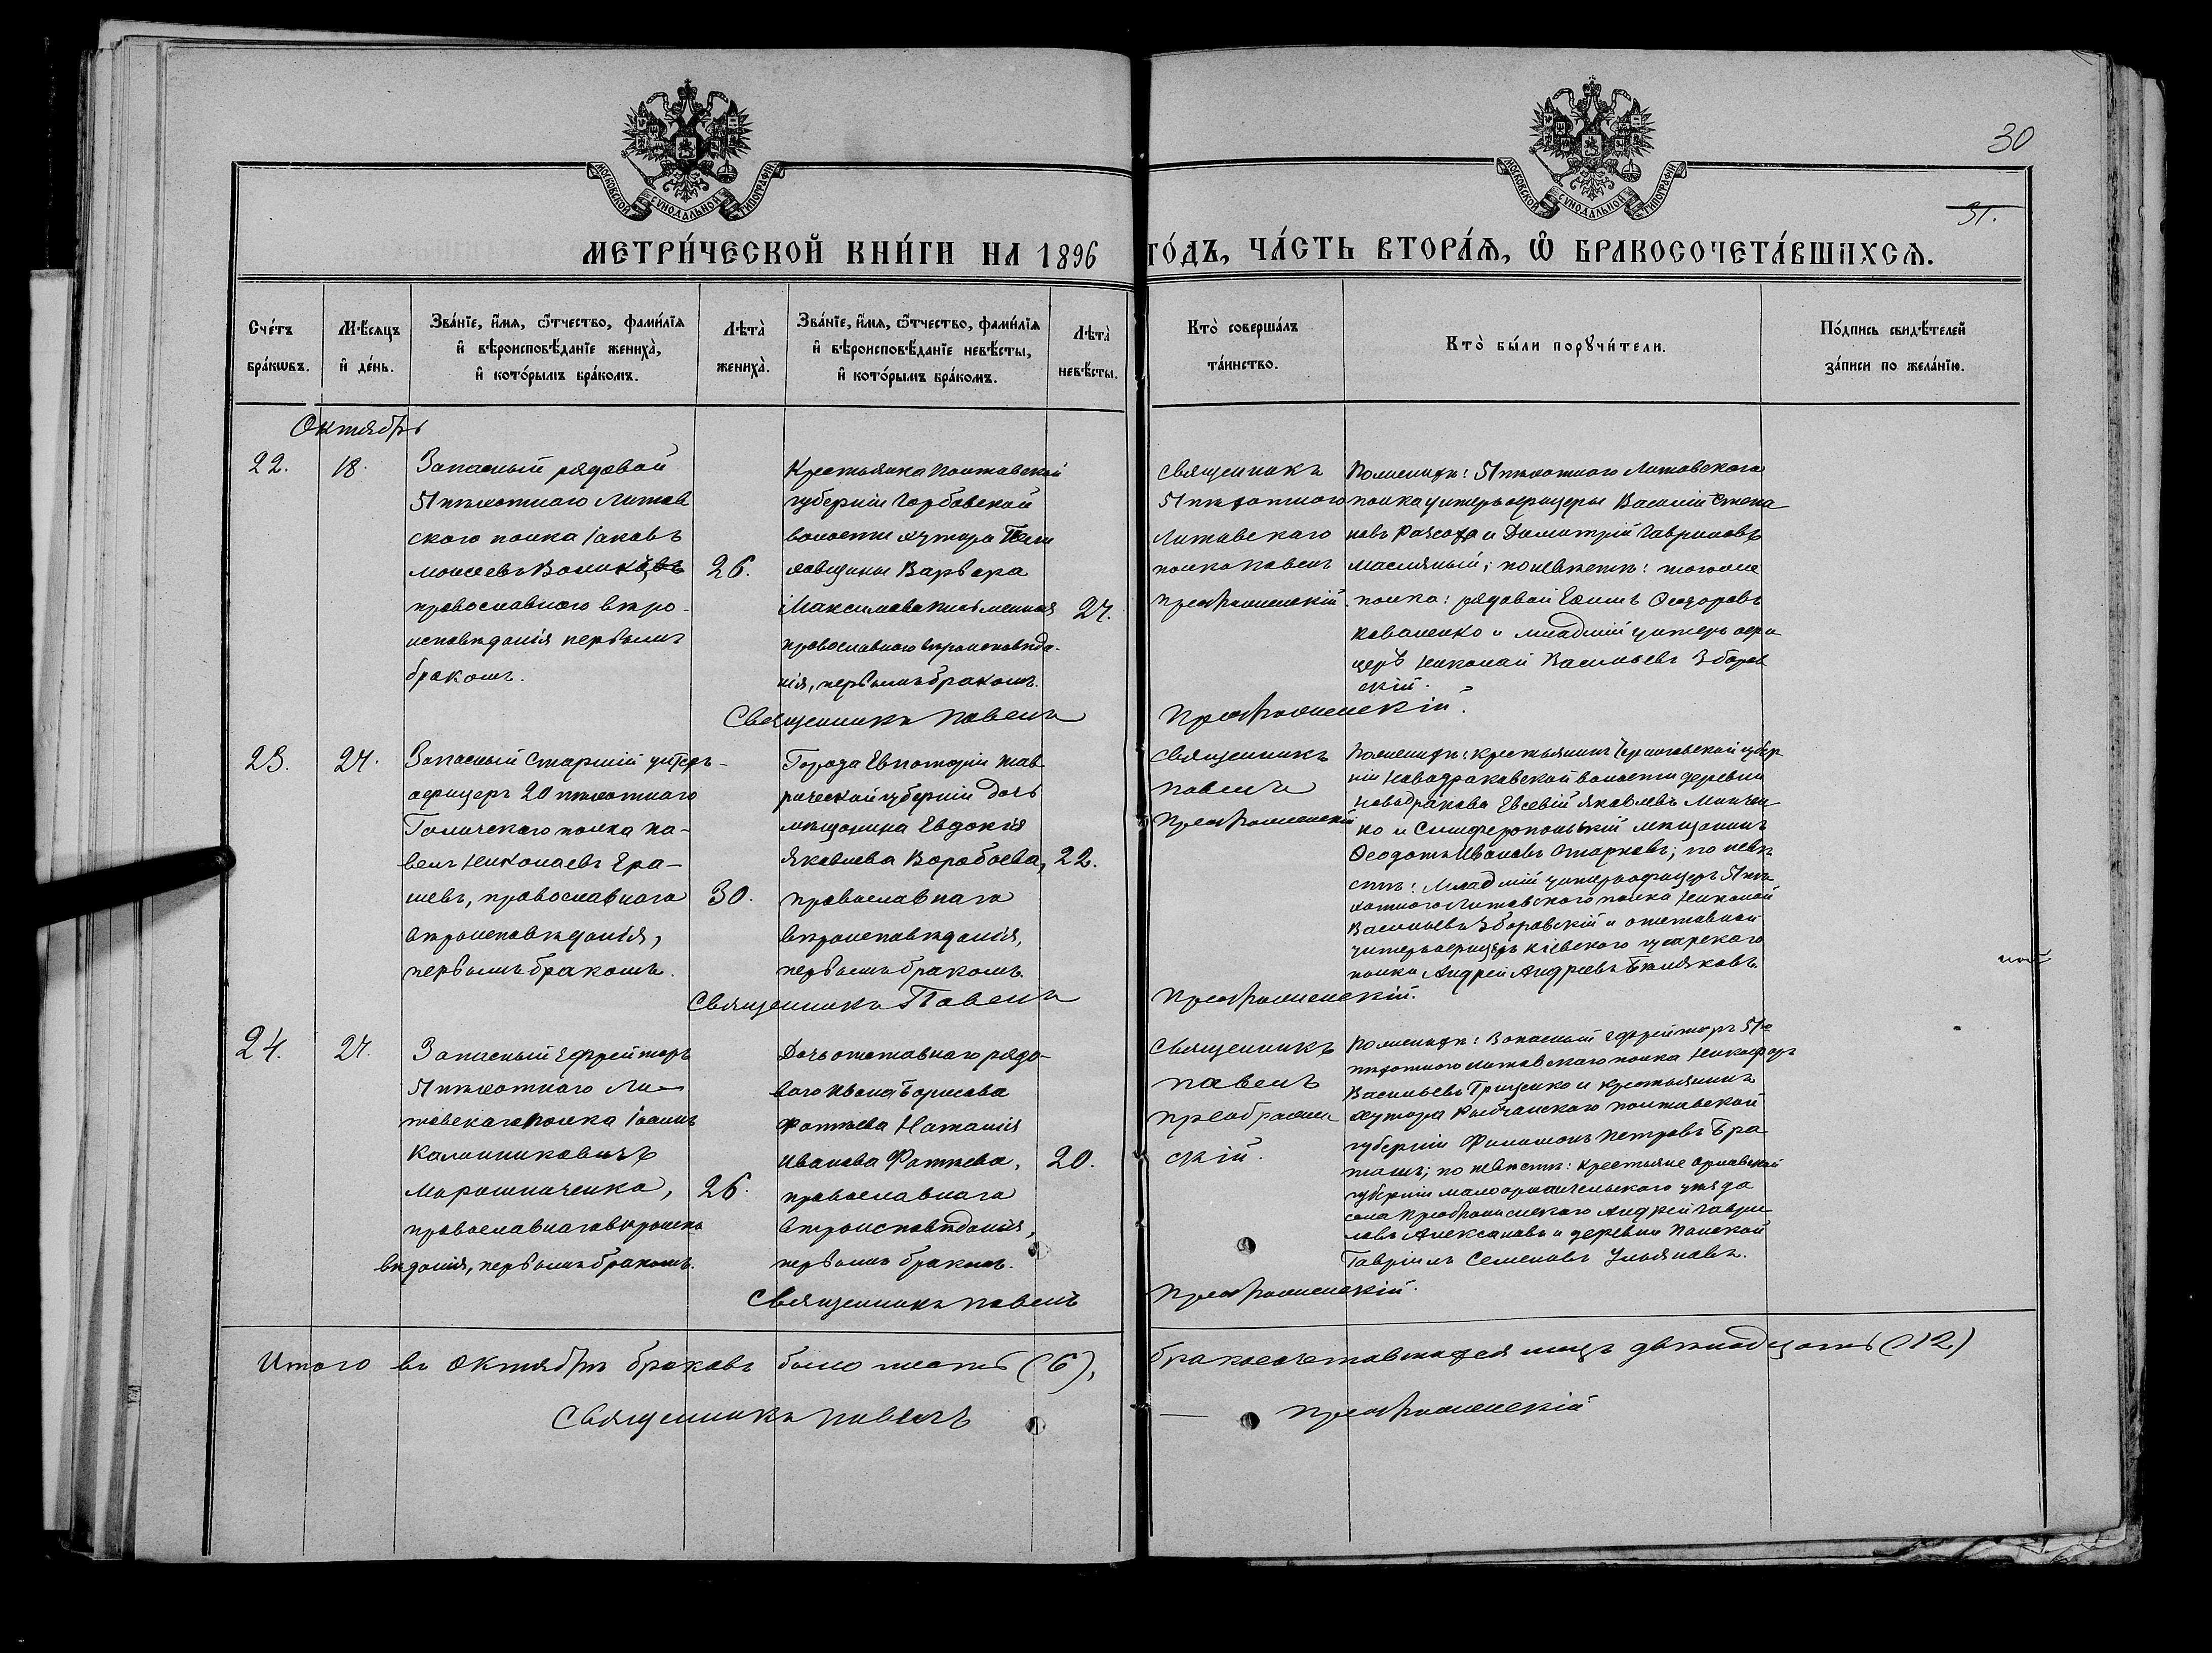 30
31.
МОСКОВСКОЙ СѴНОДАЛЬНОЙ ТИПОГРАФІИ
МОСКОВСКОЙ СѴНОДАЛЬНОЙ ТИПОГРАФІИ
МЕТРИ́ЧЕСКОЙ КНИ́ГИ НА 1896 ГО́ДЪ, ЧА́СТЬ ВТОРА́Я, Ѽ БРАКОСОЧЕТА́ВШИХСЯ.
Сче́тъ бра́кѡвъ.
Мѣ́сяцъ и҆ де́нь.
Зва́нїе, и҆́мя, ѻ҆́тчество, фами́лїя
и҆ вѣроисповѣ́данїе жениха̀,
и҆ кото́рымъ бра́комъ.
Лѣта̀ жениха̀.
Зва́нїе, и҆́мя, ѻ҆́тчество, фами́лїя
и҆ вѣроисповѣ́данїе невѣ́сты,
и҆ кото́рымъ бра́комъ.
Лѣта̀ невѣ́сты.
Кто̀ соверша́лъ та́инство.
Кто̀ бы́ли порꙋчи́тели.
По́дпись свидѣ́телей
за́писи по жела́нїю.
Октябрь
22.
18.
Запасный рядовой
51 пѣхотнаго Литов
скаго полка Іаковъ
Моисеевъ
православнаго вѣро-
исповѣданія первымъ
бракомъ.
26.
Крестьянка Полтавской
губерніи Горбовской
волости хутора
Варвара
Максимова Письменная
православнаго вѣроисповѣда-
нія, первымъ бракомъ.
27.
Священникъ
51 пѣхотнаго
Литовскаго
полка Павелъ
Преображенскій.
По женихѣ: 51 пѣхотнаго Литовскаго
полка унтеръ офицеры Василій Степа
новъ и Димитрій Гавриловъ
Масляный; по невѣстѣ: того же
полка: рядовой Ефимъ Ѳеодоровъ
Коваленко и младшій унтеръ офи
церъ Николай Васильевъ Зборов
скій.
Священникъ Павелъ Преображенскій.
23.
27.
Запасный Старшій унтеръ-
офицеръ 20 пѣхотнаго
Галичскаго полка Па-
велъ Николаевъ Ера-
шевъ, православнаго
вѣроисповѣданія,
первымъ бракомъ.
30.
Города Евпаторіи Тав
рической губерніи дочь
мѣщанина Евдокія
Яковлева Воробьева,
православнаго
вѣроисповѣданія,
первымъ бракомъ.
22.
Священникъ
Павелъ
Преображенскій
По женихѣ: Крестьянинъ Черниговской губер
ніи волости деревни
Евсевій Яковлевъ
и Симферопольскій мѣщанинъ
Ѳеодотъ Ивановъ; по невѣ
стѣ: Младшій унтеръ офицеръ 51 пѣ
хотнаго Литовскаго полка Николай
Васильевъ Зборовскій и отставной
унтеръ офицеръ Кіевскаго гусарскаго
полка Андрей Андреевъ Бѣляковъ.
Священникъ Павелъ Преображенскій.
24.
27.
Запасный Ефрейторъ
51 пѣхотнаго Ли-
товскаго полка Іоаннъ
Калинниковичъ
Мирошниченко,
православнаго вѣроиспо
вѣданія, первымъ бракомъ.
26.
Дочь отставнаго рядо-
ваго Ивана Борисова
Фатѣева Наталія
Иванова Фатѣева,
православнаго
вѣроисповѣданія,
первымъ бракомъ.
20.
Священникъ
Павелъ
Преображен
скій.
По женихѣ: Запасный Ефрейторъ 51-го
пѣхотнаго Литовскаго полка Никифоръ
Васильевъ Гриценко и крестьянинъ
хутора Полтавской
губерніи Филимонъ Петровъ Бра
; по невѣстѣ: крестьяне Орловской
губерніи Малоархангельскаго уѣзда
села Преображенскаго Андрей Гаври
ловъ Алексановъ и деревни Панской
Гавріилъ Семеновъ Ульяновъ.
Священникъ Павелъ Преображенскій.
Итого въ Октябрѣ браковъ было шесть (6), бракосочетавшихся лицъ двѣнадцать (12)
Священникъ Павелъ Преображенскій